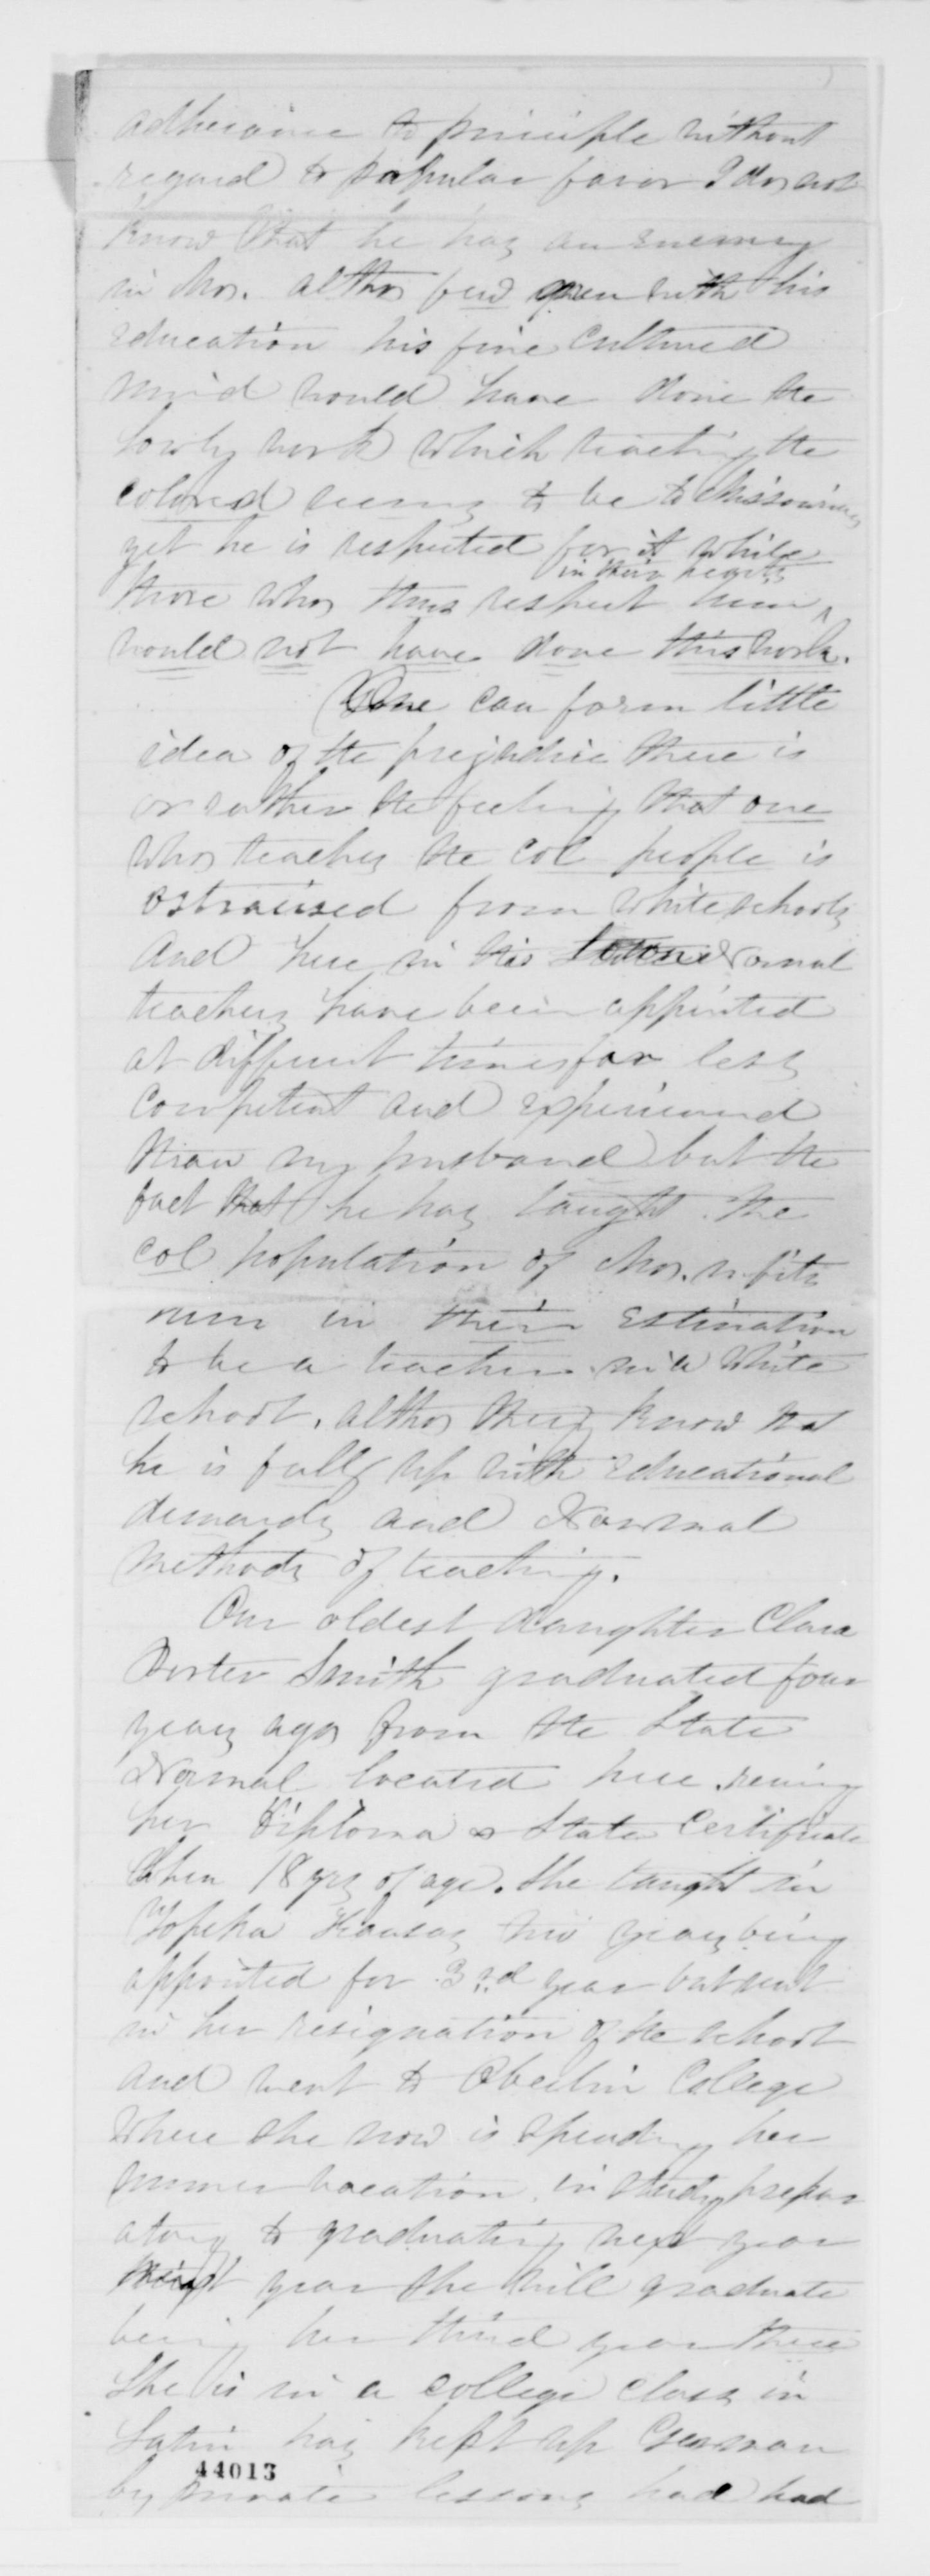 adherance to principle without
regard to popular favor I do not
know that he has an enemy
in Mo. altho few given with his
education his fine cultured
mind would have done the
lowly work which teaching the
colored seems to be to Missourians
yet he is respected for it while
in their hearts
those who thus respect him ^
would not have done this work.
One can form little
idea of the prejudice there is
or rather the feeling that one
who teaches the col people is
ostraised from white schools
And here in this Normal
teachers have been appointed
at different times far less
competent and experienced
than my husband but the
fact that he has taught the
col population of Mo. unfits
him in their estimation
to be a teacher in a white
school, altho they know that
he is fully up with educational
demands and Normal
methods of teaching.
Our oldest daughter Clara
Porter Smith graduated four
years ago from the State
Normal located here
her Diploma & State Certificate
when 18 yrs of age. She taught in
Topeka Kansas two years being
appointed for 3rd year but sent
in her resignation of the school
and went to Oberlin College
where she now is spending her
summer vacation in study prepar
atory to graduating next year
year she will graduate
being her third year there
She is in a college class in
Latin has kept up German
by private lessons had had
44013